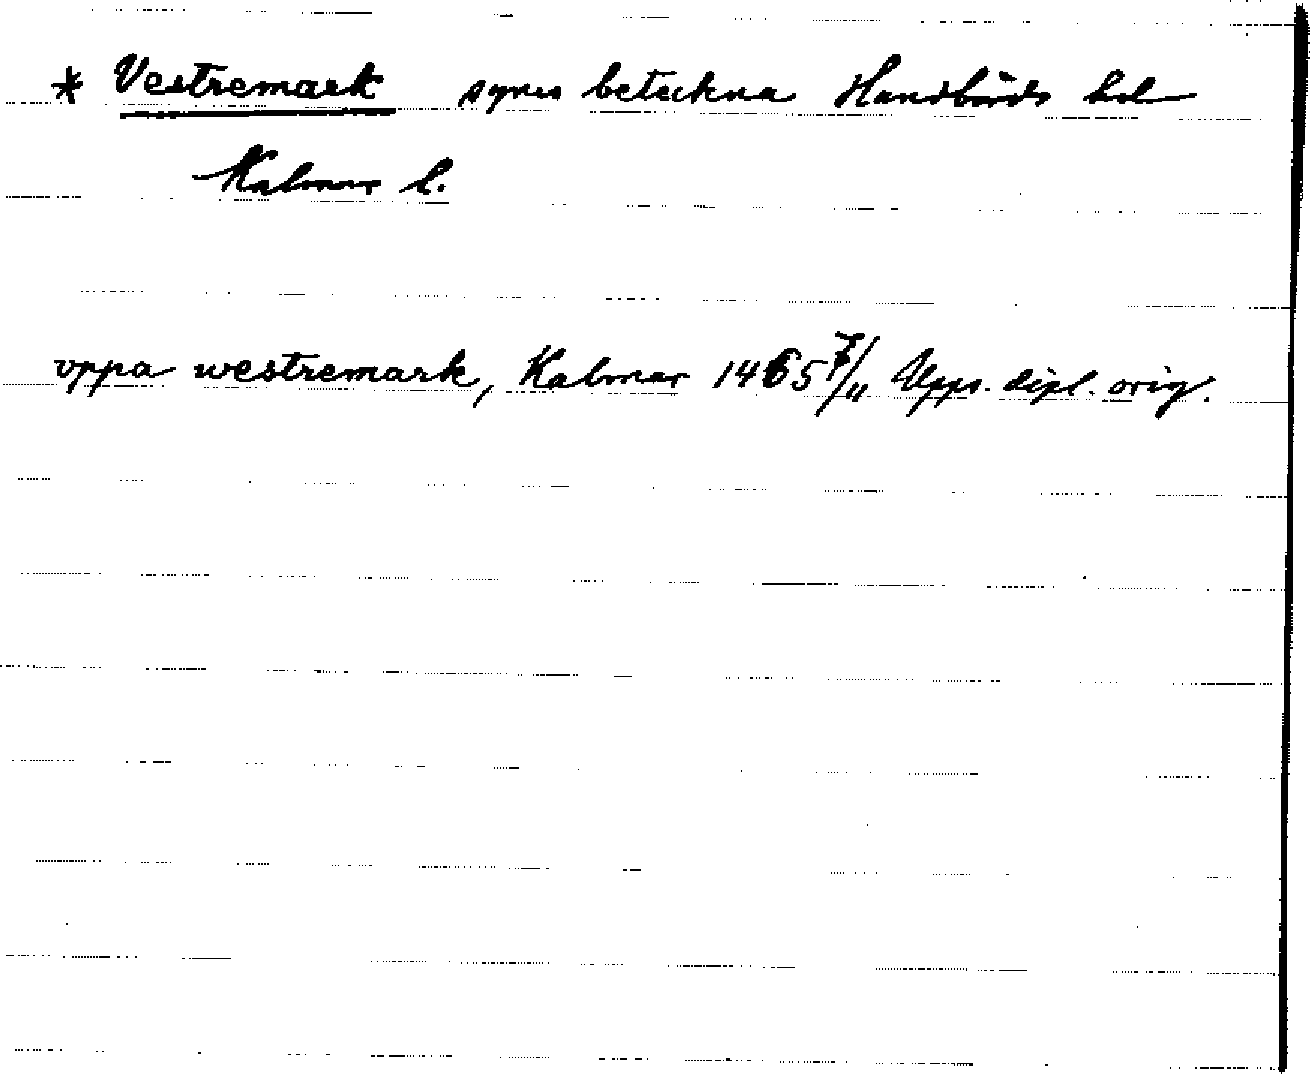 * Vestremark synes beteckna Handbörds hd
Kalmar l.
vppa westremark, Kalmar 1465 7/11 Upps. dipl. orig.